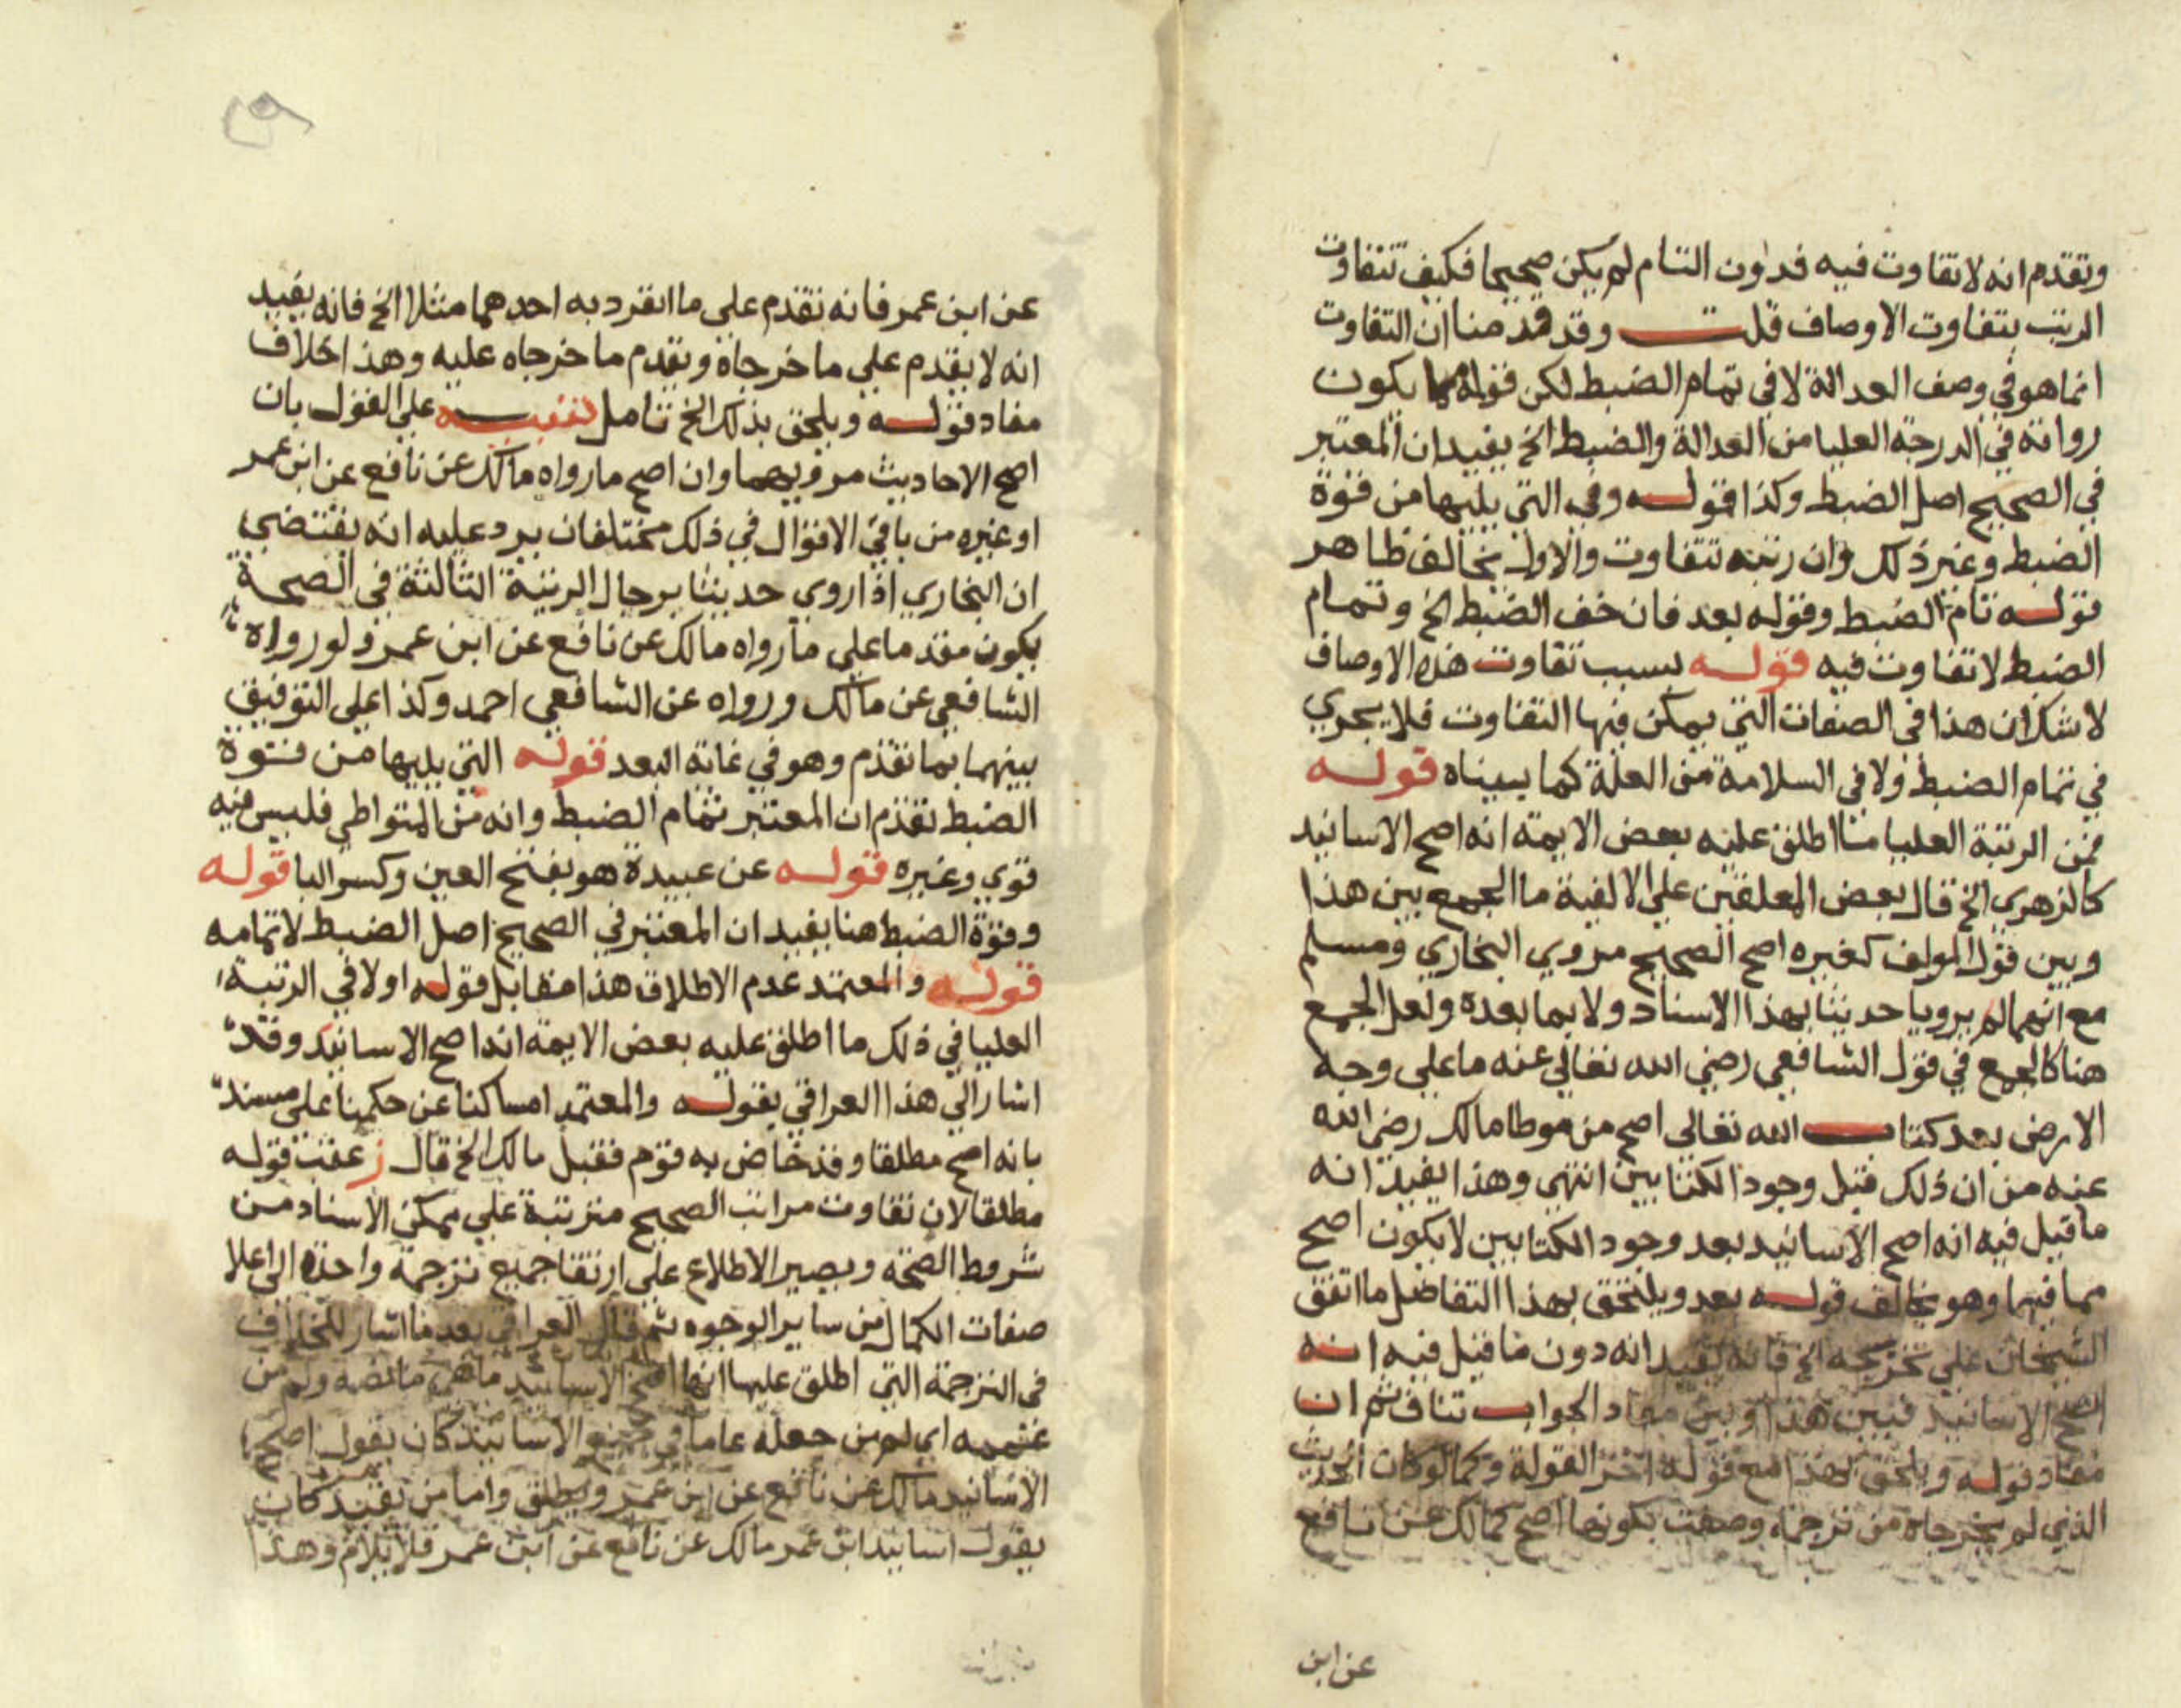 وتقدم انه لا تفاوت فيه فدون التام لم يكن صحيحا فكيف تتفاوت
الرتب بتفاوت الاوصاف قلت وقد قدمنا ان التفاوت
انما هو في وصف العدالة لا في تمام الضبط لكن قوله يكون
رواته في الدرجة العليا من العدالة والضبط الخ يفيد ان المعتبر
في الصحيح اصل الضبط وكذا قوله وفي التي يليها من قوة
الضبط وغير ذلك وان رتبه تتفاوت والاول يخالف ظاهر
قوله تام الضبط وقوله بعد فان خف الضبط الخ وتمام
الضبط لا تفاوت فيه قوله بسبب تفاوت هذه الاوصاف
لا شك ان هذا في الصفات التي يمكن فيها التفاوت فلا يجري
في تمام الضبط ولا في السلامة من العلة كما بيناه قوله
فمن الرتبة العليا ما اطلق عليه بعض الايمة انه اصح الاسانيد
كالزهري الخ قال بعض المعلقين على الالفية ما الجمع بين هذا
وبين قول المولف كغيره اصح الصحيح مروي البخاري ومسلم
مع انهما لم يرويا حديثا بهذا الاسناد ولا بما بعده ولعل الجمع
هنا كالجمع في قول الشافعي رضي الله تعالى عنه ما على وجه
الارض بعد كتاب الله تعالى اصح من موطا مالك رضي الله
عنه من ان ذلك قبل وجود الكتابين انتهى وهذا يفيد انه
ما قيل فيه انه اصح الاسانيد بعد وجود الكتابين لا يكون اصح
مما فيهما وهو يخالف قوله بعد ويلتحق بهذا التفاضل ما اتفق
الشيخان على تخريجه الخ فانه يفيد انه دون ما قيل فيه انه
اصح الاسانيد فبين هذا وبين مفاد الجواب تناف ثم ان
مفاد قوله ويلحق بهذا مع قوله اخر القولة وكما لو كان الحديث
الذي لم يخرجاه من ترجمة وصفت بكونها اصح كمالك عن نافع
عن ابن
عن ابن عمر فانه تقدم على ما انفرد به احدهما مثلا الخ فانه يفيد
انه لا يقدم على ما خرجاه ويقدم ما خرجاه عليه وهذا خلاف
مفاد قوله ويلحق بذلك الخ تامل تنبيه على القول بان
اصح الاحاديث مرويهما وان اصح ما رواه مالك عن نافع عن ابن عمر
او غيره من باقي الاقوال في ذلك مختلفان يرد عليه انه يقتضي
ان البخاري اذا روي حديثا برجال الرتبة الثالثة في الصحة
يكون مقدما على ما رواه مالك عن نافع عن ابن عمر ولو رواه
الشافعي عن مالك ورواه عن الشافعي احمد وكذا على التوفيق
بينهما بما تقدم وهو في غاية البعد قوله التي يليها من قوة
الضبط تقدم ان المعتبر تمام الضبط وانه من المتواطي فليس فيه
قوي وغيره قوله عن عبيدة هو بفتح العين وكسر البا قوله
وقوة الضبط هنا يفيد ان المعتبر في الصحيح اصل الضبط لا تمامه
قوله والمعتمد عدم الاطلاق هذا مقابل قوله اولا في الرتبة
العليا في ذلك ما اطلق عليه بعض الايمة انه اصح الاسانيد وقد
اشار الي هذا العراقي بقوله والمعتمد امساكنا عن حكمنا على مسند
بانه اصح مطلقا وقد خاض به قوم فقيل مالك الخ قال ز عقب قوله
مطلقا لان تفاوت مراتب الصحيح مترتبة على تمكن الاسناد من
شروط الصحة ويصير الاطلاع على ارتقا جميع ترجمة واحدة الي اعلا
صفات الكمال من ساير الوجوه ثم قال العراقي بعد ما اشار للخلاف
في الترجمة التي اطلق عليها انها اصح الاسانيد ما هي ما نصه ولم من
عممه اي لم من جعله عاما في جميع الاسانيد كان يقول اصح
الاسانيد مالك عن نافع عن ابن عمر ويطلق واما من يقيد كان
يقول اسانيد ابن عمر مالك عن نافع عن ابن عمر فلا يلام وهذا